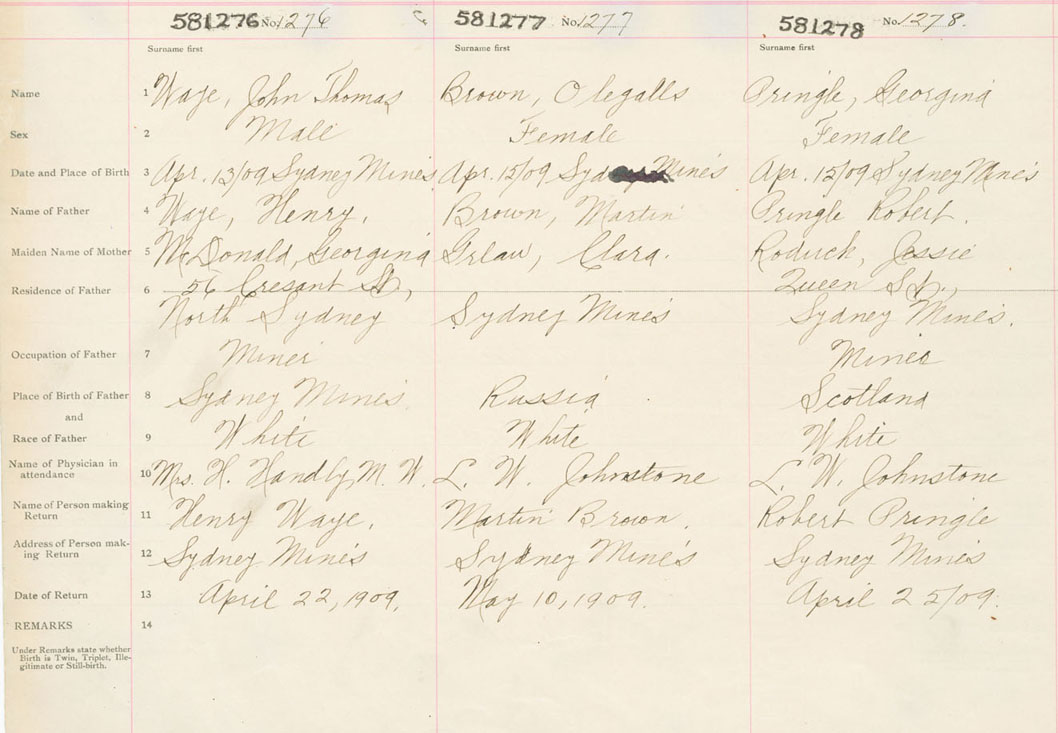 581276 No. 1276 581277 No. 1277 581278 No. 1278.
Surname first Surname first Surname first
Name 1 Waye, John Thomas Brown, Olegalls Pringle, Georgina
Sex 2 Male Female Female
Date and Place of Birth 3 Apr. 13/09 Sydney Mines Apr. 15/09 Syd Mines Apr. 15/09 Sydney Mines
Name of Father 4 Waye, Henry. Brown, Martin Pringle Robert.
Maiden Name of Mother 5 McDonald, Georgina Grlaw, Clara. Roduck, Jessie
Residence of Father 6 56 Cresant St., Queen St.,
North Sydney Sydney Mines Sydney Mines.
Occupation of Father 7 Miner Miner
Place of Birth of Father 8 Sydney Mines. Russia Scotland
and
Race of Father 9 White White White
Name of Physician in
attendance 10 Mrs. H. Handly M. W. L. W. Johnstone L. W. Johnstone
Name of Person making
Return 11 Henry Waye. Martin Brown. Robert Pringle
Address of Person mak-
ing Return 12 Sydney Mines Sydney Mines Sydney Mines
Date of Return 13 April 22, 1909. May 10, 1909. April 25/09.
REMARKS 14
Under Remarks state whether
Birth is Twin, Triplet, Ille-
gitimate or Still-birth.